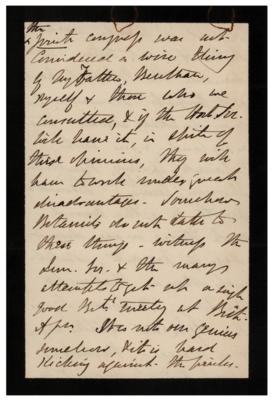 the
& joint congress was not
considered a wise thing
by my Father, Bentham,
myself & those who we
consulted, & if the Hort. Soc.
will have it, in spite of
these opinions, they will
have to work under great
disadvantages. Somehow
Botanists do not take to
these things - witness the
Linn. Soc. & the many
attempts to get up a single
good Bot! meeting at Brit.
Assn. It is not our genius
somehow, & it is hard
kicking against the pricks.